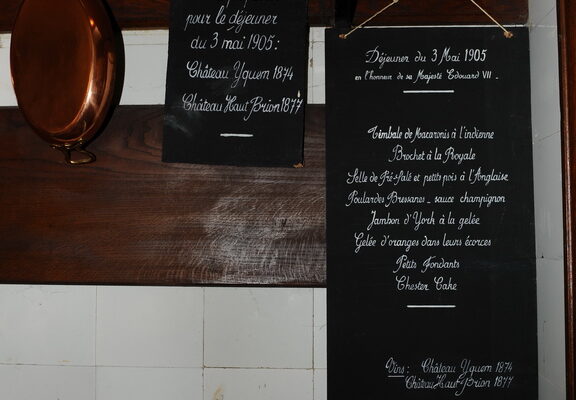 pour le déjeuner
du 3 mai 1905 :
Château Yquem 1874
Château Haut Brion 1877
Déjeuner du 3 Mai 1905
en l'honneur de sa Majesté Edouard VII _
Timbale de Macaronis à l'indienne
Brochet à la Royale
Selle de Pré-salé et petits pois à l'Anglaise
Poulardes Bressanes _ sauce champignon
Jambon d'York à la gelée
Gelée d'oranges dans leurs écorces
Petits Fondants
Chester Cake
Vins : Château Yquem 1874
Château Haut-Brion 1877